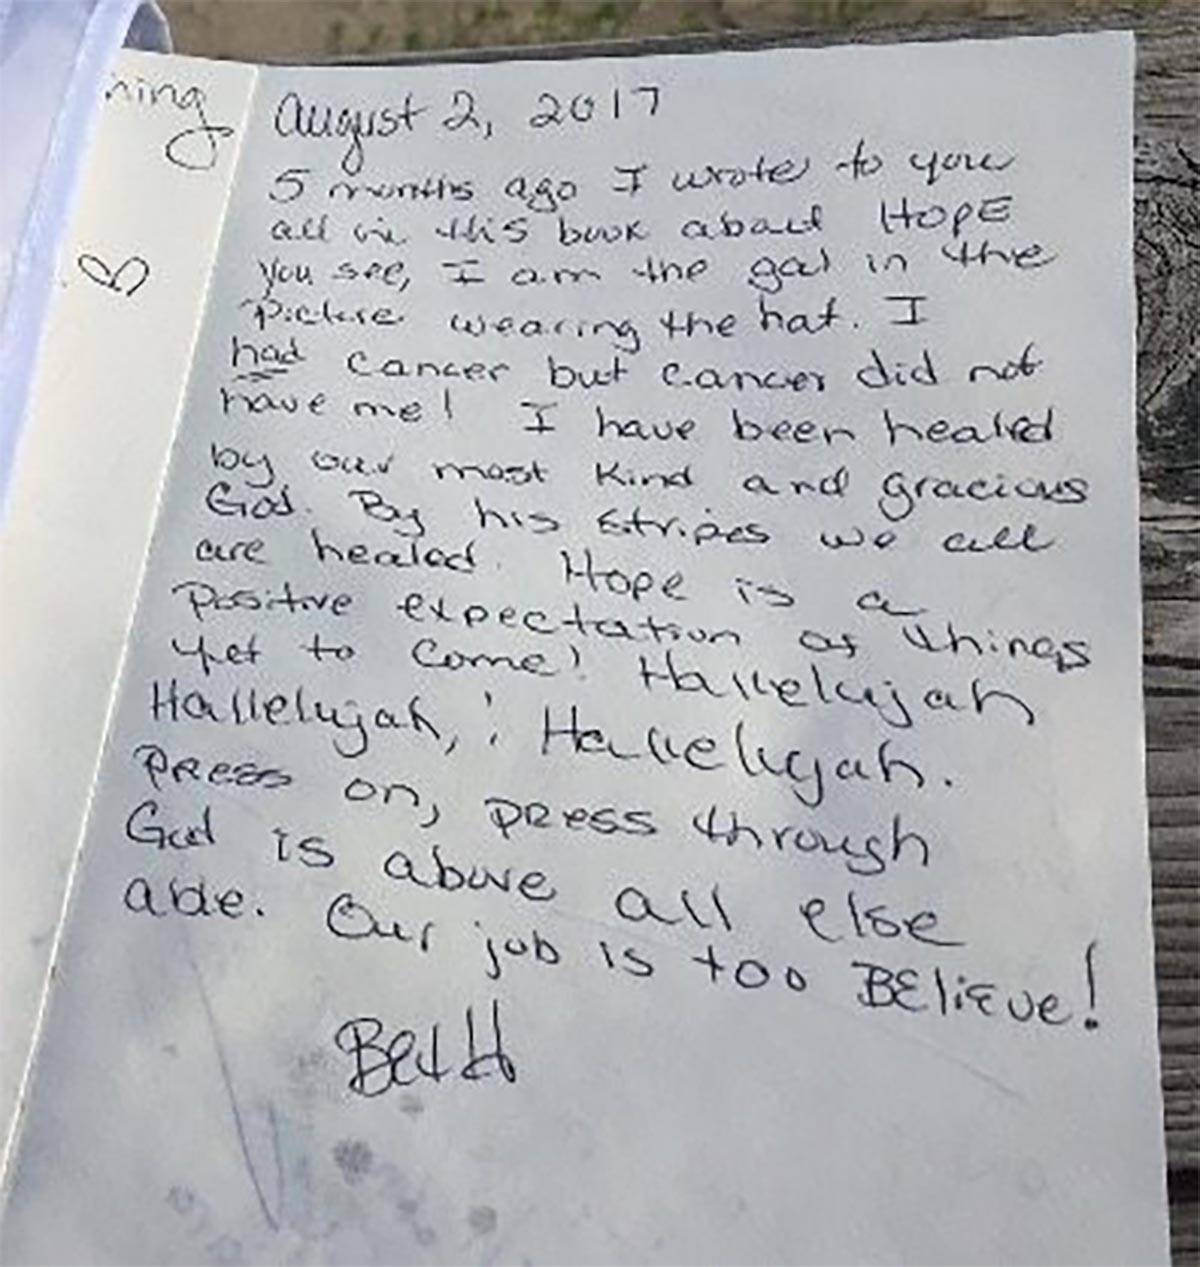 ning
August 2, 2017
5 months ago I wrote to you
all in this book about HOPE
You see, I am the gal in the
picture wearing the hat. I
had cancer but cancer did not
have me! I have been healed
by our most kind and gracious
God. By his stripes we all
are healed. Hope is a
positive expectation of things
yet to come! Hallelujah
Hallelujah, ! Hallelujah.
Press on, press through
God is above all else
able. Our job is too BElieve!
BetH